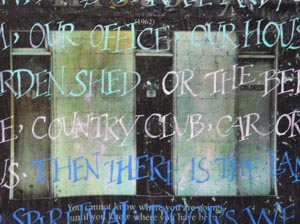 (1962)
, OUR OFFICE. OUR HOUS
RDEN SHED. OR THE BE
E, COUNTRY CLUB, CAR OR
US. THEN THERE IS THE TA
You cannot know where you are going
until you know where you have been